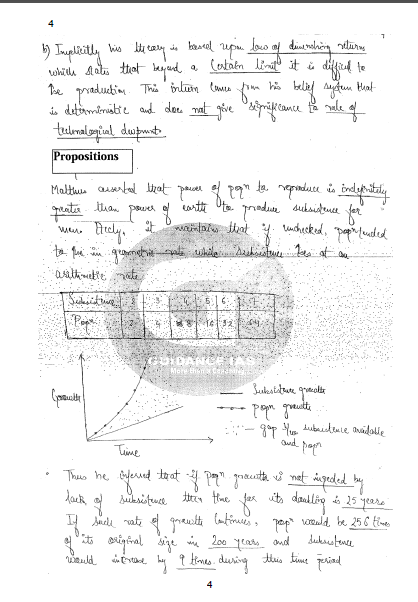 4
b) Implicitly his theory is based upon law of diminshing returns
which states that beyond a certain limit it is difficult to
the production. This inturn comes from his belief system that
is deterministic and does not give significance to role of
technological
Propositions
Malthus asserted that power of popn to reproduce is indefinitely
greater than power of earth to produce subsistence for
men. it maintains that if unchecked, popn tended
to in geometric rate while subsistence at an
arithmetic rate
Subsistence 2 3 4 5 6 7
Popn 2 4 8 16 32 64
GUIDANCE IAS
More than a Coaching
Growth
Time
Subsistence growth
popn growth
gap b/w subsistence available
and popn
Thus he inferred that if popn growth is not impeded by
lack of subsistence then time for its doubling is 25 years
If such rate of growth continues, popn would be 256 times
of its original size in 200 years and subsistence
would increase by 9 times during this time period
4